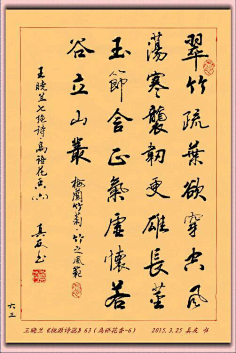 翠竹疏葉欲穿空風
蕩寒襲韌更雄長莖
玉節含正氣虛懷若
谷立山叢
梅蘭竹菊·竹之風範
王曉蘭七绝詩·鳥語花香(六)
真友书
六三
王晓兰《 诗蕴》63(鸟语花香-6) 2015.3.25 真友 书